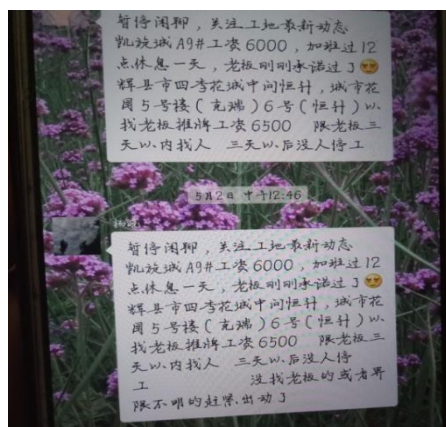 暂停闲聊，关注工地最新动态
凯旋城A9#工资6000，加班过12
点休息一天，老板刚刚承诺过了😍
辉县市四季花城中间恒升，城市花
园5号楼（克瑞）6号（恒升）以
找老板推牌工资6500 限老板三
天以、内找人 三天以、后没人停工
5月2日 中午12:46
暂停闲聊，关注工地最新动态
凯旋城A9#工资6000，加班过12
点休息一天，老板刚刚承诺过了😍
辉县市四季花城中间恒升，城市花
园5号楼（克瑞）6号（恒升）以
找老板推牌工资6500 限老板三
天以、内找人 三天以、后没人停
工 没找老板的或者界
限不明的赶紧出动了